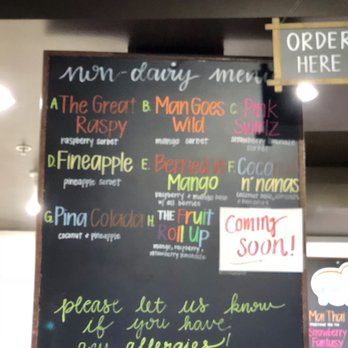 non-dairy menu
ORDER
HERE
A. The Great
Raspy
raspberry sorbet
B. Man Goes
Wild
mango sorbet
C. Pink
Swirlz
strawberry
D. Fineapple
pineapple sorbet
E. Berried in
Mango
raspberry & mango base
w/ all berries
F. Coco
n' nanas
G. Pina Colada
coconut & pineapple
H. THE Fruit
Roll Up
mango, raspberry,
strawberry
Coming
Soon!
please let us know
if you have
any allergies!
Mai Thai
Strawberry
Fantasy